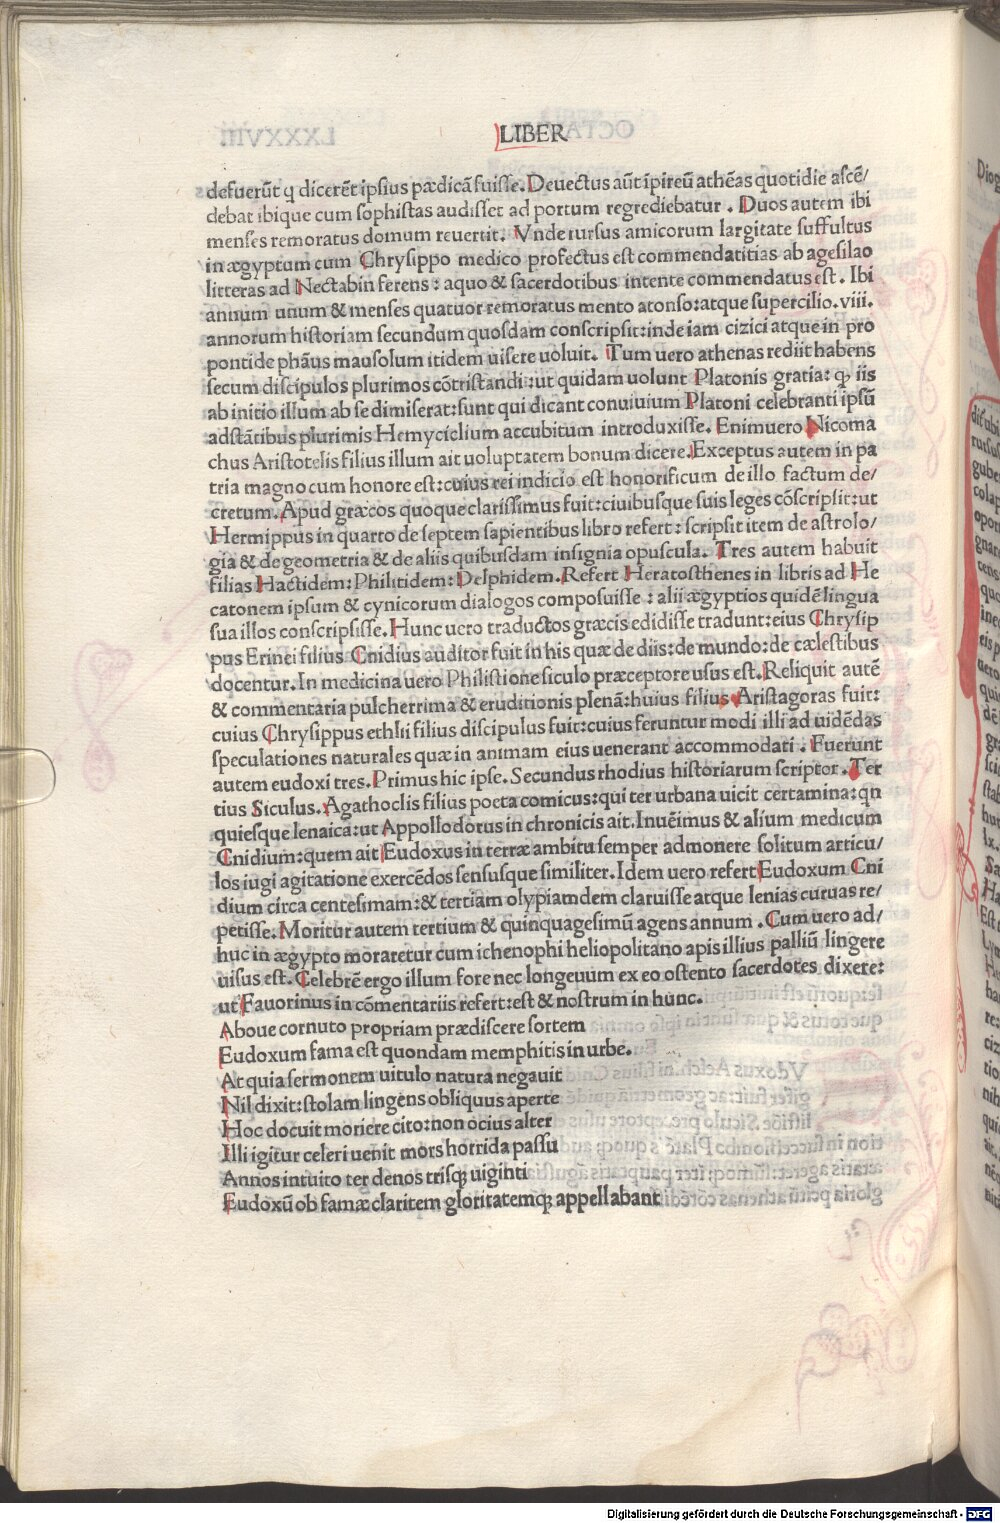 LIBER
defuerūt q dicerēt ipsius pædicā fuisse. Deuectus aūt ī pireū athēas quotidie ascē/
debat ibique cum sophistas audisset ad portum regrediebatur. Duos autem ibi
menses remoratus domum reuertit. Vnde rursus amicorum largitate suffultus
in ægyptum cum Chrysippo medico profectus est commendatitias ab agesilao
litteras ad Nectabin ferens: a quo & sacerdotibus intente commendatus est. Ibi
annum unum & menses quatuor remoratus mento atonso: atque supercilio. viii.
annorum historiam secundum quosdam conscripsit: inde iam cizici atque in pro
pontide phāus mausolum itidem uisere uoluit. Tum uero athenas rediit habens
secum discipulos plurimos cōtristandi: ut quidam uolunt Platonis gratia: ꝙ iis
ab initio illum ab se dimiserat: sunt qui dicant conuiuium Platoni celebranti ipsū
adstātibus plurimis Hemyciclium accubitum introduxisse. Enimuero Nicoma
chus Aristotelis filius illum ait uoluptatem bonum dicere. Exceptus autem in pa
tria magno cum honore est: cuius rei indicio est honorificum de illo factum de/
cretum. Apud græcos quoque clarissimus fuit: ciuibusque suis leges cōscripsit: ut
Hermippus in quarto de septem sapientibus libro refert: scripsit item de astrolo/
gia & de geometria & de aliis quibusdam insignia opuscula. Tres autem habuit
filias Hactidem: Philitidem: Delphidem. Refert Heratosthenes in libris ad He
catonem ipsum & cynicorum dialogos composuisse: alii ægyptios quidē lingua
sua illos conscripsisse. Hunc uero traductos græcis edidisse tradunt: eius Chrysip
pus Erinei filius Cnidius auditor fuit in his quæ de diis: de mundo: de cælestibus
docentur. In medicina uero Philistione siculo præceptore usus est. Reliquit autē
& commentaria pulcherrima & eruditionis plenā: huius filius Aristagoras fuit:
cuius Chrysippus ethlii filius discipulus fuit: cuius feruntur modi illi ad uidēdas
speculationes naturales quæ in animam eius uenerant accommodati. Fuerunt
autem eudoxi tres. Primus hic ipse. Secundus rhodius historiarum scriptor. Ter
tius Siculus. Agathoclis filius poeta comicus: qui ter urbana uicit certamina: qn
quiesque lenaica: ut Appollodorus in chronicis ait. Inuēimus & alium medicum
Cnidium: quem ait Eudoxus in terræ ambitu semper admonere solitum articu/
los iugi agitatione exercēdos sensusque similiter. Idem uero refert Eudoxum Cni
dium circa centesimam: & tertiam olypiamdem claruisse atque lenias curuas re/
petisse. Moritur autem tertium & quinquagesimū agens annum. Cum uero ad/
huc in ægypto moraretur cum ichenophi heliopolitano apis illius palliū lingere
uisus est. Celebrē ergo illum fore nec longeuum ex eo ostento sacerdotes dixere:
ut Fauorinus in cōmentariis refert: est & nostrum in hunc.
A boue cornuto propriam prædiscere sortem
Eudoxum fama est quondam memphitis in urbe.
At quia sermonem uitulo natura negauit
Nil dixit: stolam lingens obliquus aperte
Hoc docuit moriere cito: non ocius alter
Illi igitur celeri uenit mors horrida passu
Annos intuito ter denos trisqꝫ uiginti
Eudoxū ob famæ claritem gloritatemqꝫ appellabant
Digitalisierung gefördert durch die Deutsche Forschungsgemeinschaft - DFG